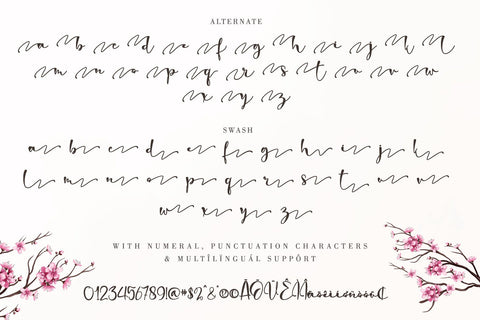 ALTERNATE
a b c d e f g h i j k l
m n o p q r s t u v w
x y z
SWASH
a b c d e f g h i j k
l m n o p q r s t u v
w x y z
WITH NUMERAL, PUNCTUATION CHARACTERS
& MULTÌLÌNGUÁL SUPPÓRT
0123456789!@#$